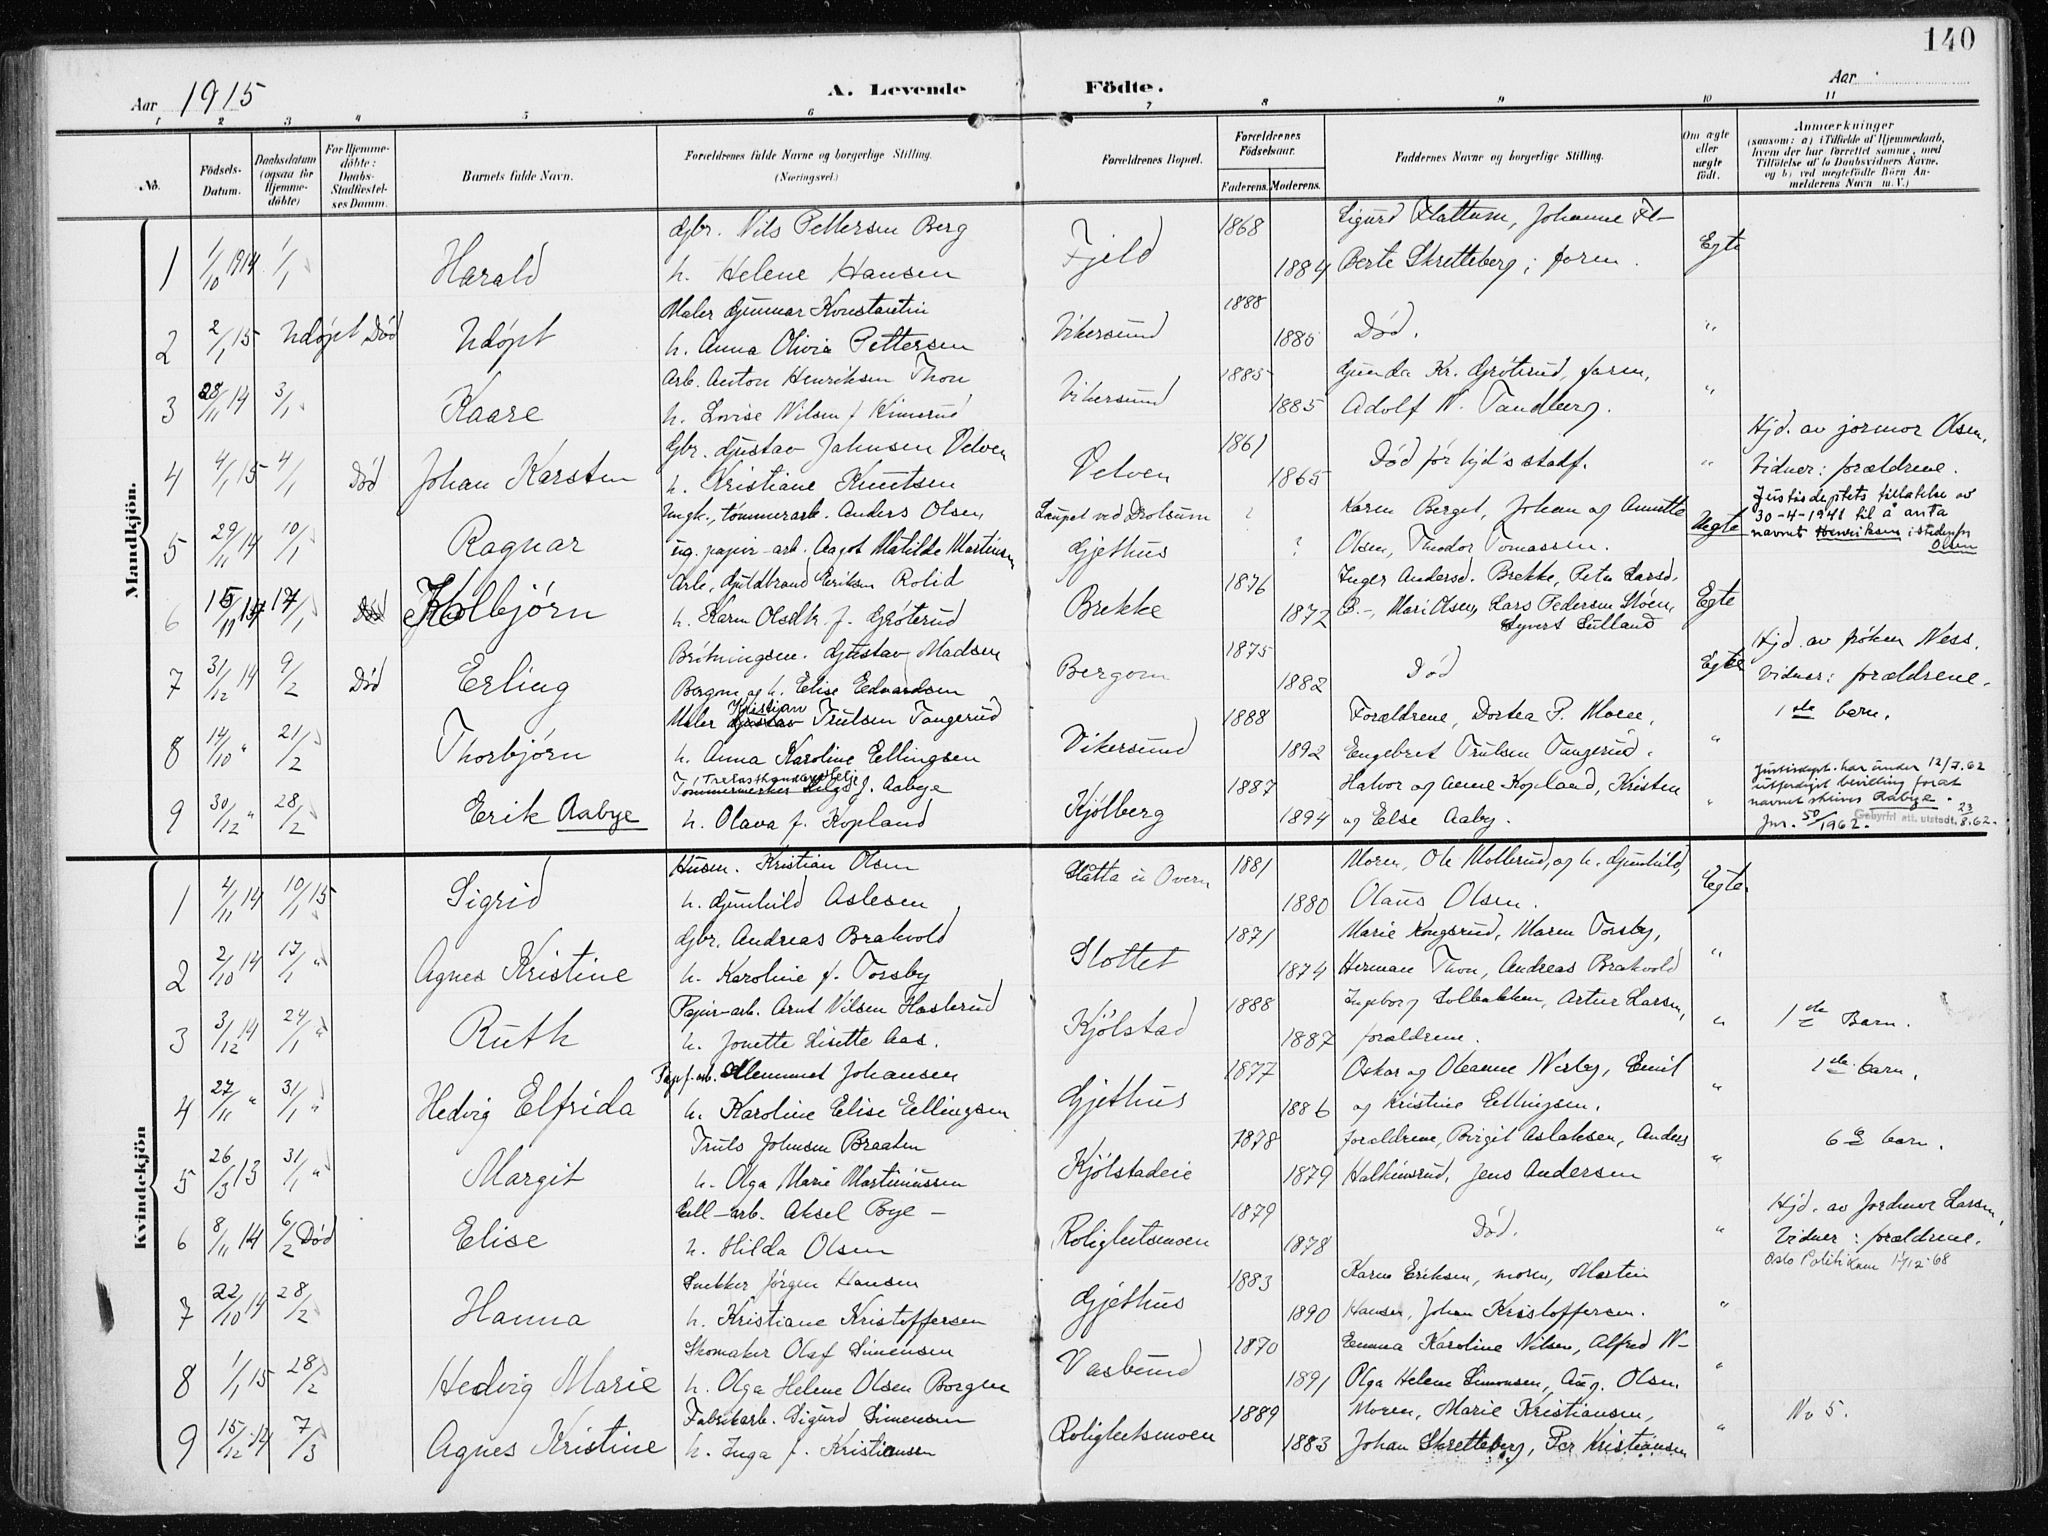 140
Aar 1915
A. Levende Födte.
Aar
1 2 3 4 5 6 7 8 9 10 11
No.
Födsels-Datum.
Daabsdatum (ogsaa for Hjemme-döbte)
For Hjemme-döbte: Daabs-Stadfæstel-ses Datum.
Barnets fulde Navn.
Forældrenes fulde Navne og borgerlige Stilling. (Næringsvei.)
Forældrenes Bopæl.
Forældrenes Födselsaar.
Faderens. Moderens.
Faddernes Navne og borgerlige Stilling.
Om ægte eller uægte födt.
Anmærkninger
(saasom: a) i Tilfælde af Hjemmedaab, hvem der har forrettet samme, med Tilföielse af to Daabsvidners Navne, og b) ved uægtefödte Börn An-melderens Navn m. V.)
Mandkjön.
1 1/10 1914 1/1 Harald
Gbr. Nils Pettersen Berg
h. Helene Hansen
Fjeld 1868 1884
Sigurd Flattum, Johanne Fl-
Berte Skretteberg, faren.
Egte
2 2/1 15 Udøpt Død Udøpt
Maler Gunnar Konstantin
h. Anna Olivia Pettersen
Vikersund 1888 1886
Død. "
3 28/11 14 3/1 Kaare
Arb. Anton Henriksen Thon
h. Lovise Nilsen f. Kimerud
Vikersund 1885 1885
Gunda Kr. Grøterud, faren,
Adolf N. Tandberg. "
4 4/1 15 4/1 Død Johan Karsten
Gbr. Gustav Jahnsen Velven
h. Kristiane Knutsen
Velven 1861 1865
Død før hjd's stadf. "
Hjd. av jormor Olsen,
Vidner: forældrene.
5 29/11 14 10/1 Ragnar
Ungk., tømmerarb. Anders Olsen,
ug. papir-arb. Aagot Matilde Martinsen
ved Drolsum
Gjethus ? ?
Karen Berget, Johan og Annette
Olsen, Theodor Tomassen.
Uegte
Justisdeptets tillatelse av
30-4-1941 til å anta
navnet Henriksen istedenfor
Olsen
6 15/11 14 17/1 Død Kolbjørn
Arb. Guldbrand Eriksen Rolid
h. Karen Olsdtr. f. Grøterud
Brekke 1876 1872
Inger Andersd. Brekke, Peter Larsd.
B-, Mari Olsen, Lars Pedersen Moen,
Syvert Sulland
Egte
7 31/12 14 9/2 Død Erling
Gustav Madsen
Bergom og h. Elise Edvardsen
Bergom 1875 1882
Død Egte
Hjd. av frøken Ness.
Vidner: forældrene.
8 14/10 " 21/2 Thorbjørn
Kristian
Maler Gustav Trulsen Tangerud
h. Anna Karoline Ellingsen
Vikersund 1888 1892
Forældrene, Dortea P. Moene,
Engebret Trulsen Tangerud. "
1ste barn.
9 30/12 " 28/2 Erik Aabye
Trelasthandlerbetj.
Tømmermerker Helge J. Aabye
h. Olava f. Kopland
Kjølberg 1887 1894
Halvor og Anne Kopland, Kristen
og Else Aaby. "
Justisdept. har under 12/7.62
utferdiget bevilling for at
navnet skrives Aabye.
Jnr. 50/1962. Gebyrfri att. utstedt. 23/8.62.
Kvindekjön
1 4/11 14 10/1 15 Sigrid
Husm. Kristian Olsen
h. Gunhild Aslesen
Slåtta u Overn 1881 1880
Moren, Ole Mollerud, og h. Gunhild,
Olaus Olsen.
Egte
2 2/10 14 17/1 " Agnes Kristine
Gbr. Andreas Brakvold
h. Karoline f. Torsby
Slottet 1871 1874
Marie Kongsrud, Maren Torsby,
Herman Thon, Andreas Brakvold "
3 3/12 14 24/1 " Ruth
Papir-arb. Arnt Nilsen Haslerud
h. Jonette Lisette Aas.
Kjølstad 1888 1887
Ingeborg Solbakken, Artur Larsen,
forældrene. "
1ste Barn.
4 27/11 " 31/1 " Hedvig Elfrida
Papf.-arb. Klemmet Johansen
h. Karoline Elise Ellingsen
Gjethus 1877 1886
Oskar og Oleanne Nerby, Emil
og Kristine Ellingsen. "
1ste barn.
5 26/3 13 31/1 " Margit
Truls Johnsen Braaten
h. Olga Marie Martiniussen
Kjølstadeie 1878 1879
forældrene, Birgit Aslaksen, Anders
Halkinrud, Jens Andersen "
6e barn.
6 8/11 14 6/2 Død Elise
Cell-arb. Aksel Bye -
h. Hilda Olsen
Roligheitsmoen 1879 1878
Død. "
Hjd. av Jordmor Larsen,
Vidner: forældrene.
7 22/10 14 28/2 Hanna
Snekker Jørgen Hansen
h. Kristiane Kristoffersen
Gjethus 1883 1890
Karen Eriksen, moren, Martin
Hansen, Johan Kristoffersen. "
Oslo Politikam 1/12-68
8 1/1 15 28/2 Hedvig Marie
Skomaker Olaf Simensen
h. Olga Helene Olsen Borgen
Vasbund 1870 1891
Emma Karoline Nilsen, Alfred N-
Olga Helene Simonsen, Aug. Olsen. "
9 15/12 14 7/3 Agnes Kristine
Fabrikarb. Sigurd Simensen
h. Inga f. Kristiansen
Roligheitsmoen 1889 1883
Moren, Marie Kristiansen,
Johan Skretteberg, Per Kristiansen "
No 5.